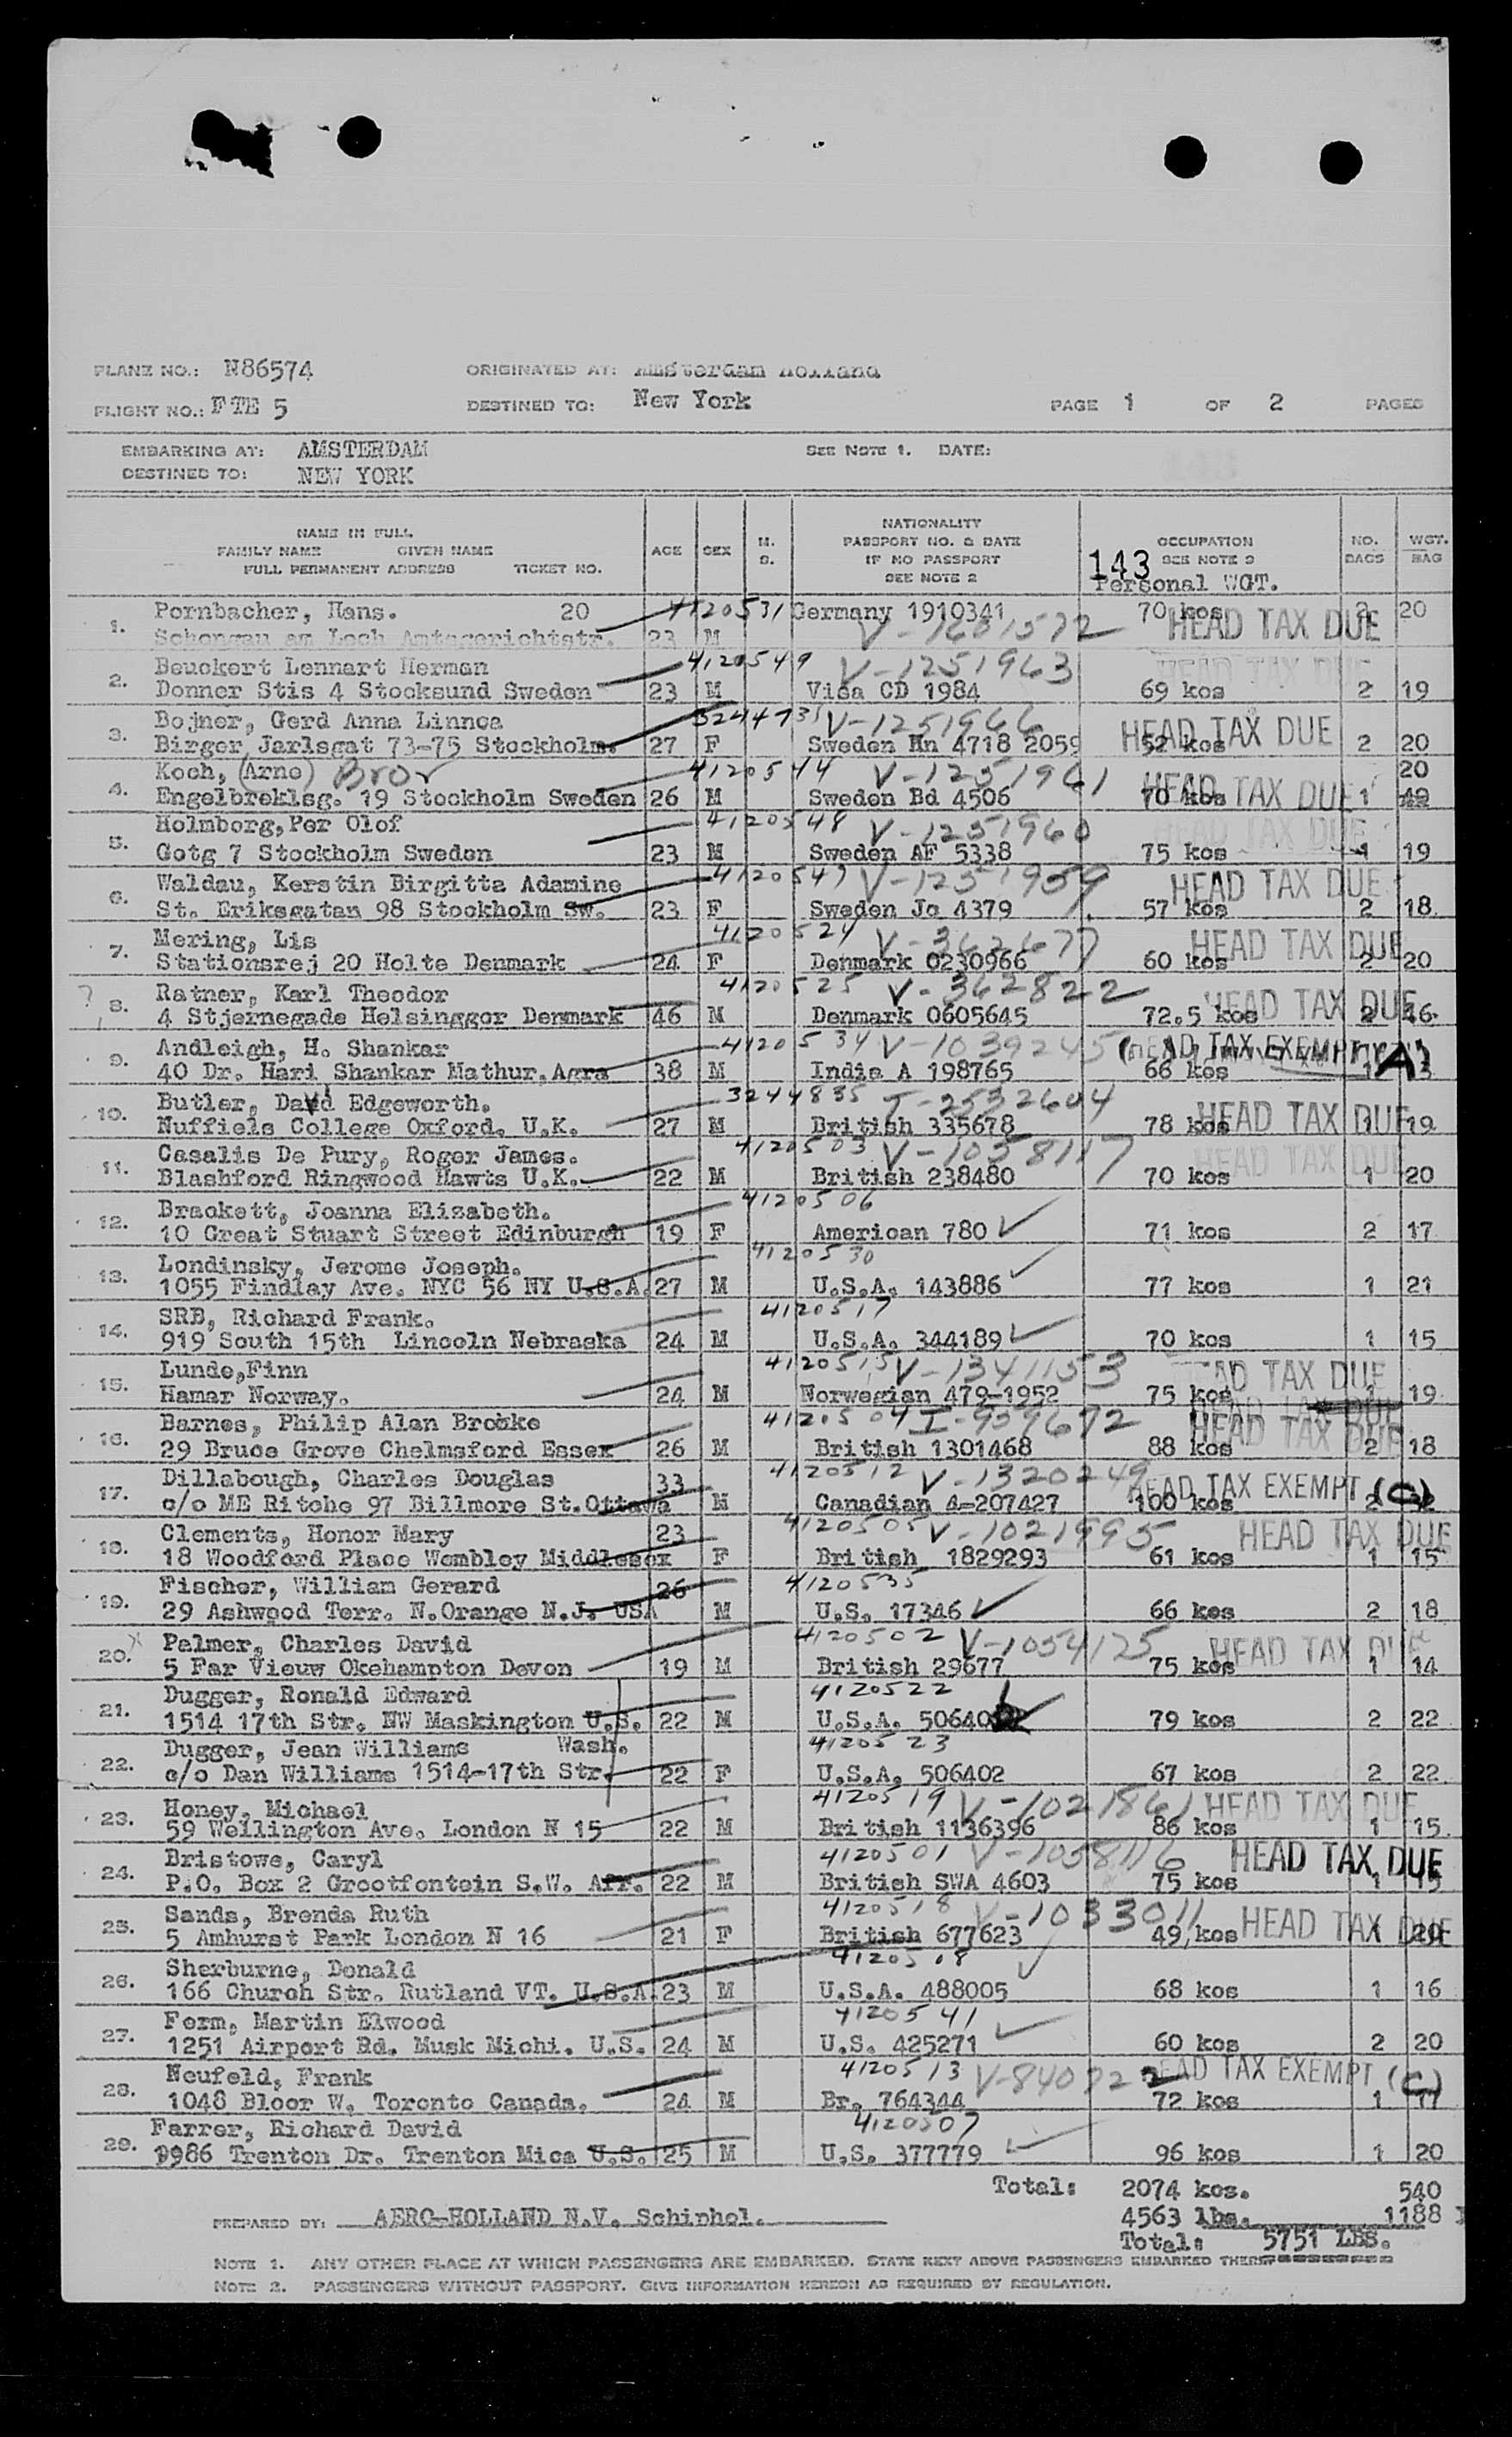 PLANE NO.: N86574 ORIGINATED AT: Amsterdam Holland
FLIGHT NO.: FTE 5 DESTINED TO: New York PAGE 1 OF 2 PAGES
EMBARKING AT: AMSTERDAM SEE NOTE 1. DATE:
DESTINED TO: NEW YORK
NAME IN FULL
FAMILY NAME GIVEN NAME
FULL PERMANENT ADDRESS TICKET NO.
AGE SEX M. S.
NATIONALITY
PASSPORT NO. & DATE
IF NO PASSPORT
SEE NOTE 2
OCCUPATION
143 SEE NOTE 3
Personal WGT.
NO. BAGS WGT. BAG
Pornbacher, Hans. 20 4120531 Germany 1910341 70 kos HEAD TAX DUE 2 20
1. Schongau am Lech Amtsgerichtstr. 23 M
Beuckert Lennart Herman 4120549 V-1251963 HEAD TAX DUE
2. Donner Stis 4 Stocksund Sweden 23 M Visa CD 1984 69 kos 2 19
Bojner, Gerd Anna Linnea V-1251966 HEAD TAX DUE
3. Birger Jarlsgat 73-75 Stockholm. 27 F Sweden Hn 4718 2059 52 kos 2 20
Koch, (Arne) Bror 4120544 V-1251961 HEAD TAX DUE 20
4. Engelbreklsg. 19 Stockholm Sweden 26 M Sweden Bd 4506 70 kos 1
Holmborg,Per Olof 4120548 V-1251960 HEAD TAX DUE
5. Gotg 7 Stockholm Sweden 23 M Sweden AF 5338 75 kos 1 19
Waldau, Kerstin Birgitta Adamine 4120547 V-1251959 HEAD TAX DUE
6. St. Eriksgatan 98 Stockholm Sw. 23 F Sweden Jo 4379 57 kos 2 18
Mering, Lis 4120524 V-362677 HEAD TAX DUE
7. Stationsrej 20 Holte Denmark 24 F Denmark 0230966 60 kos 2 20
? Ratner, Karl Theodor 4120525 V-362822 HEAD TAX DUE
8. 4 Stjernegade Helsinggor Denmark 46 M Denmark 0605645 72.5 kos 2 16
Andleigh, H. Shankar 4120534 V-1039245 HEAD TAX EXEMPT (A)
9. 40 Dr. Hari Shankar Mathur. Agra 38 M India A 198765 66 kos
Butler, David Edgeworth. 3244835 T-2532604 HEAD TAX DUE
10. Nuffiels College Oxford. U.K. 27 M British 335678 78 kos 1 19
Casalis De Pury, Roger James. 4120503 V-1058117 HEAD TAX DUE
11. Blashford Ringwood Hawts U.K. 22 M British 238480 70 kos 1 20
Brackett, Joanna Elizabeth. 4120506
12. 10 Great Stuart Street Edinburgh 19 F American 780 71 kos 2 17
Londinsky, Jerome Joseph. 4120530
13. 1055 Findlay Ave. NYC 56 NY U.S.A. 27 M U.S.A. 143886 77 kos 1 21
SRB, Richard Frank. 4120517
14. 919 South 15th Lincoln Nebraska 24 M U.S.A. 344189 70 kos 1 15
Lunde,Finn 4120515 V-1341153 HEAD TAX DUE
15. Hamar Norway. 24 M Norwegian 479-1952 75 kos 1 19
Barnes, Philip Alan Brooke 4120504 I-959672 HEAD TAX DUE
16. 29 Bruce Grove Chelmsford Essex 26 M British 1301468 88 kos 2 18
Dillabough, Charles Douglas 33 4120512 V-1320249 HEAD TAX EXEMPT (C)
17. c/o ME Ritche 97 Billmore St.Ottawa M Canadian 4-207427 100 kos 2
Clements, Honor Mary 23 4120505 V-1021995 HEAD TAX DUE
18. 18 Woodford Place Wembley Middlesex F British 1829293 61 kos 1 15
Fischer, William Gerard 26 4120535
19. 29 Ashwood Terr. N.Orange N.J. USA M U.S. 17346 66 kos 2 18
Palmer, Charles David 4120502 V-1054125 HEAD TAX DUE
20. 5 Far Vieuw Okehampton Devon 19 M British 29677 75 kos 1 14
Dugger, Ronald Edward 4120522
21. 1514 17th Str. NW Maskington U.S. 22 M U.S.A. 50640 79 kos 2 22
Dugger, Jean Williams Wash. 4120523
22. c/o Dan Williams 1514-17th Str. 22 F U.S.A. 506402 67 kos 2 22
Honey, Michael 4120519 V-1021861 HEAD TAX DUE
23. 59 Wellington Ave. London N 15 22 M British 1136396 86 kos 1 15
Bristowe, Caryl 4120501 V-1058116 HEAD TAX DUE
24. P.O. Box 2 Grootfontein S.W. Afr. 22 M British SWA 4603 75 kos 1 15
Sands, Brenda Ruth 4120518 V-1033011 HEAD TAX DUE
25. 5 Amhurst Park London N 16 21 F British 677623 49 kos 1 20
Sherburne, Donald 4120508
26. 166 Church Str. Rutland VT. U.S.A. 23 M U.S.A. 488005 68 kos 1 16
Ferm, Martin Elwood 4120541
27. 1251 Airport Rd. Musk Michi. U.S. 24 M U.S. 425271 60 kos 2 20
Neufeld, Frank 4120513 V-840722 HEAD TAX EXEMPT (C)
28. 1048 Bloor W. Toronto Canada. 24 M Br. 764344 72 kos 1 17
Farrer, Richard David 4120507
29. 9986 Trenton Dr. Trenton Mica U.S. 25 M U.S. 377779 96 kos 1 20
Total: 2074 kos. 540
PREPARED BY: AERO-HOLLAND N.V. Schiphol. 4563 lbs. 1188
Total: 5751 LBS.
NOTE 1. ANY OTHER PLACE AT WHICH PASSENGERS ARE EMBARKED. STATE NEXT ABOVE PASSENGERS EMBARKED THERE
NOTE 2. PASSENGERS WITHOUT PASSPORT. GIVE INFORMATION HEREON AS REQUIRED BY REGULATION.